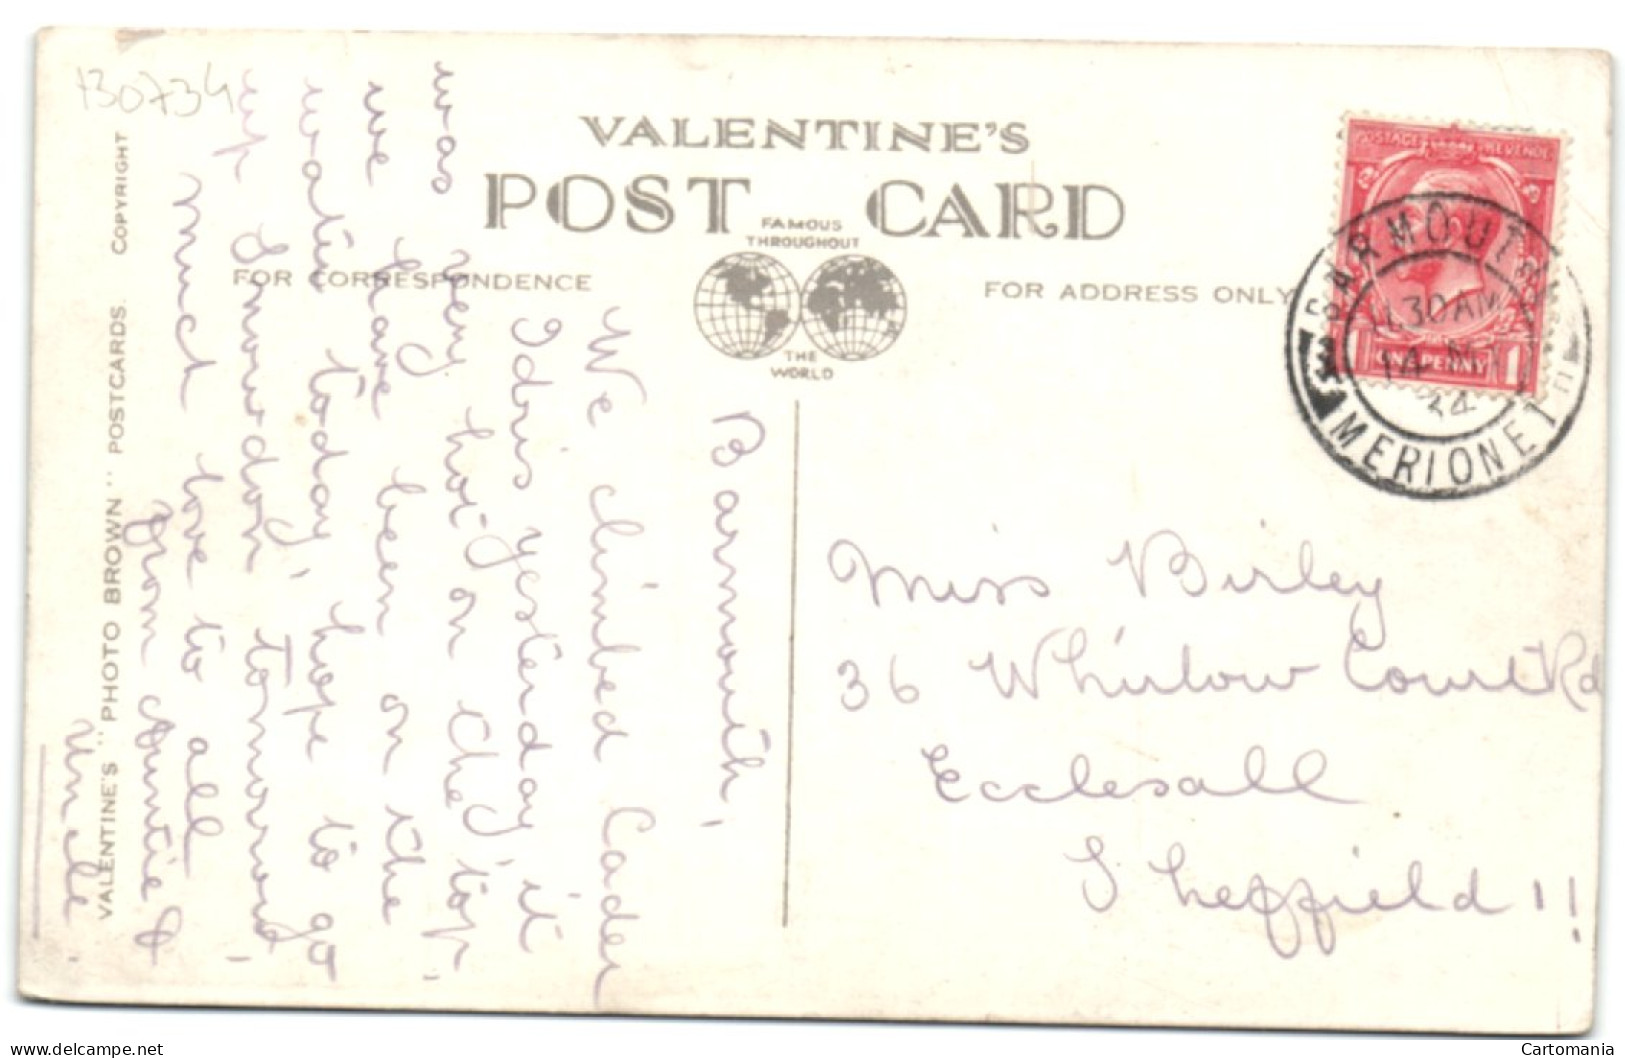 130734
VALENTINE'S
POST CARD
FAMOUS
THROUGHOUT
THE
WORLD
FOR CORRESPONDENCE
FOR ADDRESS ONLY
POSTAGE REVENUE
ONE PENNY 1
BARMOUTH
11.30 AM
14
24
MERIONETH
Barmouth.
We climbed Cader
Idris yesterday, it
was very hot on the top,
we have been on the
water today, hope to go
up Snowdon tomorrow,
much love to all
from Auntie &
Uncle.
VALENTINE'S "PHOTO BROWN" POSTCARDS. COPYRIGHT
Miss Birley
36 Whirlow Court Rd
Ecclesall
Sheffield 11
www.delcampe.net
Cartomania